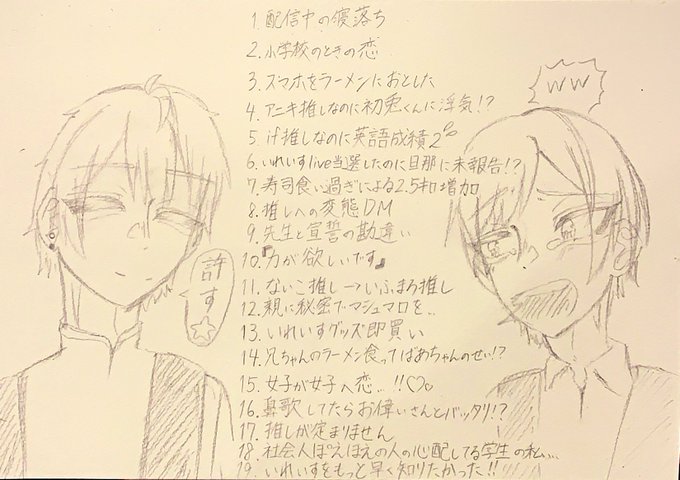 1. 配信中の寝落ち
2. 小学校のときの恋
3. スマホをラーメンにおとした
4. アニキ推しなのに初兎くんに浮気!?
5. if推しなのに英語成績2
6. いれいすlive当選したのに旦那に未報告!?
7. 寿司食い過ぎによる2.5キロ増加
8. 推しへの変態DM
9. 先生と宣誓の勘違い
10. 『力が欲しいです』
11. ないこ推し→いふまろ推し
12. 親に秘密でマシュマロを..
13. いれいすグッズ即買い
14. 兄ちゃんのラーメン食ってばあちゃんのせい!?
15. 女子が女子へ恋...!!♡
16. 鼻歌してたらお偉いさんとバッタリ!?
17. 推しが定まりません
18. 社会人ぽえぽえの人の心配してる学生の私...
19. いれいすをもっと早く知りたかった!!
許す☆
ww